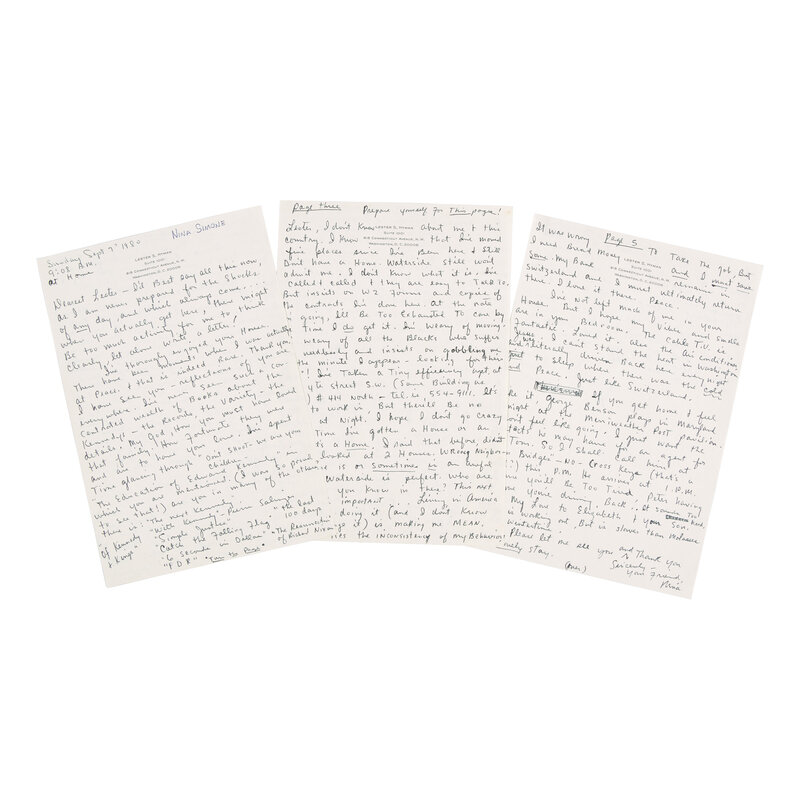 NINA SIMONE
Sunday Sept 7 1980
9:08 A.M.
at Home
LESTER S. HYMAN
SUITE 1001
WASHINGTON, D.C. 20006
Dearest Lester - I'd Best day all this now,
as I am when prepared for the Shocks
of any day, and which always come -
when you actually get here, there might
Be too much activity for me to think
Clearly, let alone write a letter,
I've thoroughly enjoyed your House.
There have been moments when I was actually
at Peace. + that is indeed rare. Thank you,
I have seen your reflections of you
everywhere. I've never seen such con
centrated wealth of Books about the
Kennedys - the Records, the Variety - the
details. My God, How you must have loved
that family. How Fortunate they were
and are to have you love. I've spent
Time glancing through "Don't Shoot - we are your
Children" "The Education of Edward Kennedy" - in
which you are mentioned. (I was so proud
to see that!) as you in many of the others
Of Kennedy
+ Kings"
"With Kennedy" - Pierre Salinger
"Simple Justice"
"Catch the Falling Flag"
"6 Seconds in Dallas"
"FDR"
"The Last
100 days"
"The Resurrection
of Richard Nixon"
Turn to Page
Page three Prepare yourself for This page!
LESTER S. HYMAN
SUITE 1001
818 CONNECTICUT AVENUE, N.W.
WASHINGTON, D.C. 20006
Lester, I don't know about me + this
country. I know that I've moved
five places since I've Been here + Still
Don't have a Home. Waterside still won't
admit me. I don't know what it is. I've
Called + called + they are easy to Talk To.
But insists on W2 Forms and copies of
the contracts I've done here. At the rate
going, I'll Be Too Exhausted To care by
Time I do get it. I'm weary of moving -
weary of all the Blacks who suffer
needlessly and insists on gobbling me
the minute I appear - looking for their
I've Taken a Tiny efficiency apt at
4th street S.W. (Same Building as
) # 414 North - Tel. is 554-9111. It's
to work in, But there'll Be no
at Night. I hope I don't go crazy
Time I've gotten a House or an
is a Home. I said that before, didn't
looked at 2 Houses. Wrong Neighbor-
e is on Sometime is an awful
Waterside is perfect. Who are
you know in there? This not
important. Living in America
doing it (and I don't know
go it) is making me MEAN.
ises the inconsistency of my Behavior
Page 5
LESTER S. HYMAN
SUITE 1001
818 CONNECTICUT AVENUE, N.W.
WASHINGTON, D.C. 20006
It was wrong To Take the job, But
I need Bread money and I must save
some. My Bank remains in
Switzerland and I must ultimately return
there. I love it there. Peace.
I've Not left much of me in your
House. But I hope my Vibes and smells
are in your Bedroom. The Cable T.V. is
Fantastic. Loved it. also the Air conditioner
I can't stand the heat in Washington
driven Back here every night
just to Sleep when there was the Cold
Peace. Just like Switzerland.
If you get home + feel
like it George Benson plays in Maryland
night at the Merriweather Post Pavilion.
don't feel like going, I just want the
tacts he may have for an agent for
Tom. So I shall call him at
Bridges" - NO - Cross Keys (that's a
!) this P.M. He arrives at 1 P.M.
me you'll Be Too Tired + Peter having
me you're driving Back. It sounds Too hard.
My Love to Elizabeth + your Son.
is working out, But is slower than Molasses
Please let me all you and Thank you
nely stay.
Sincerely
your Friend,
Nina
(over)